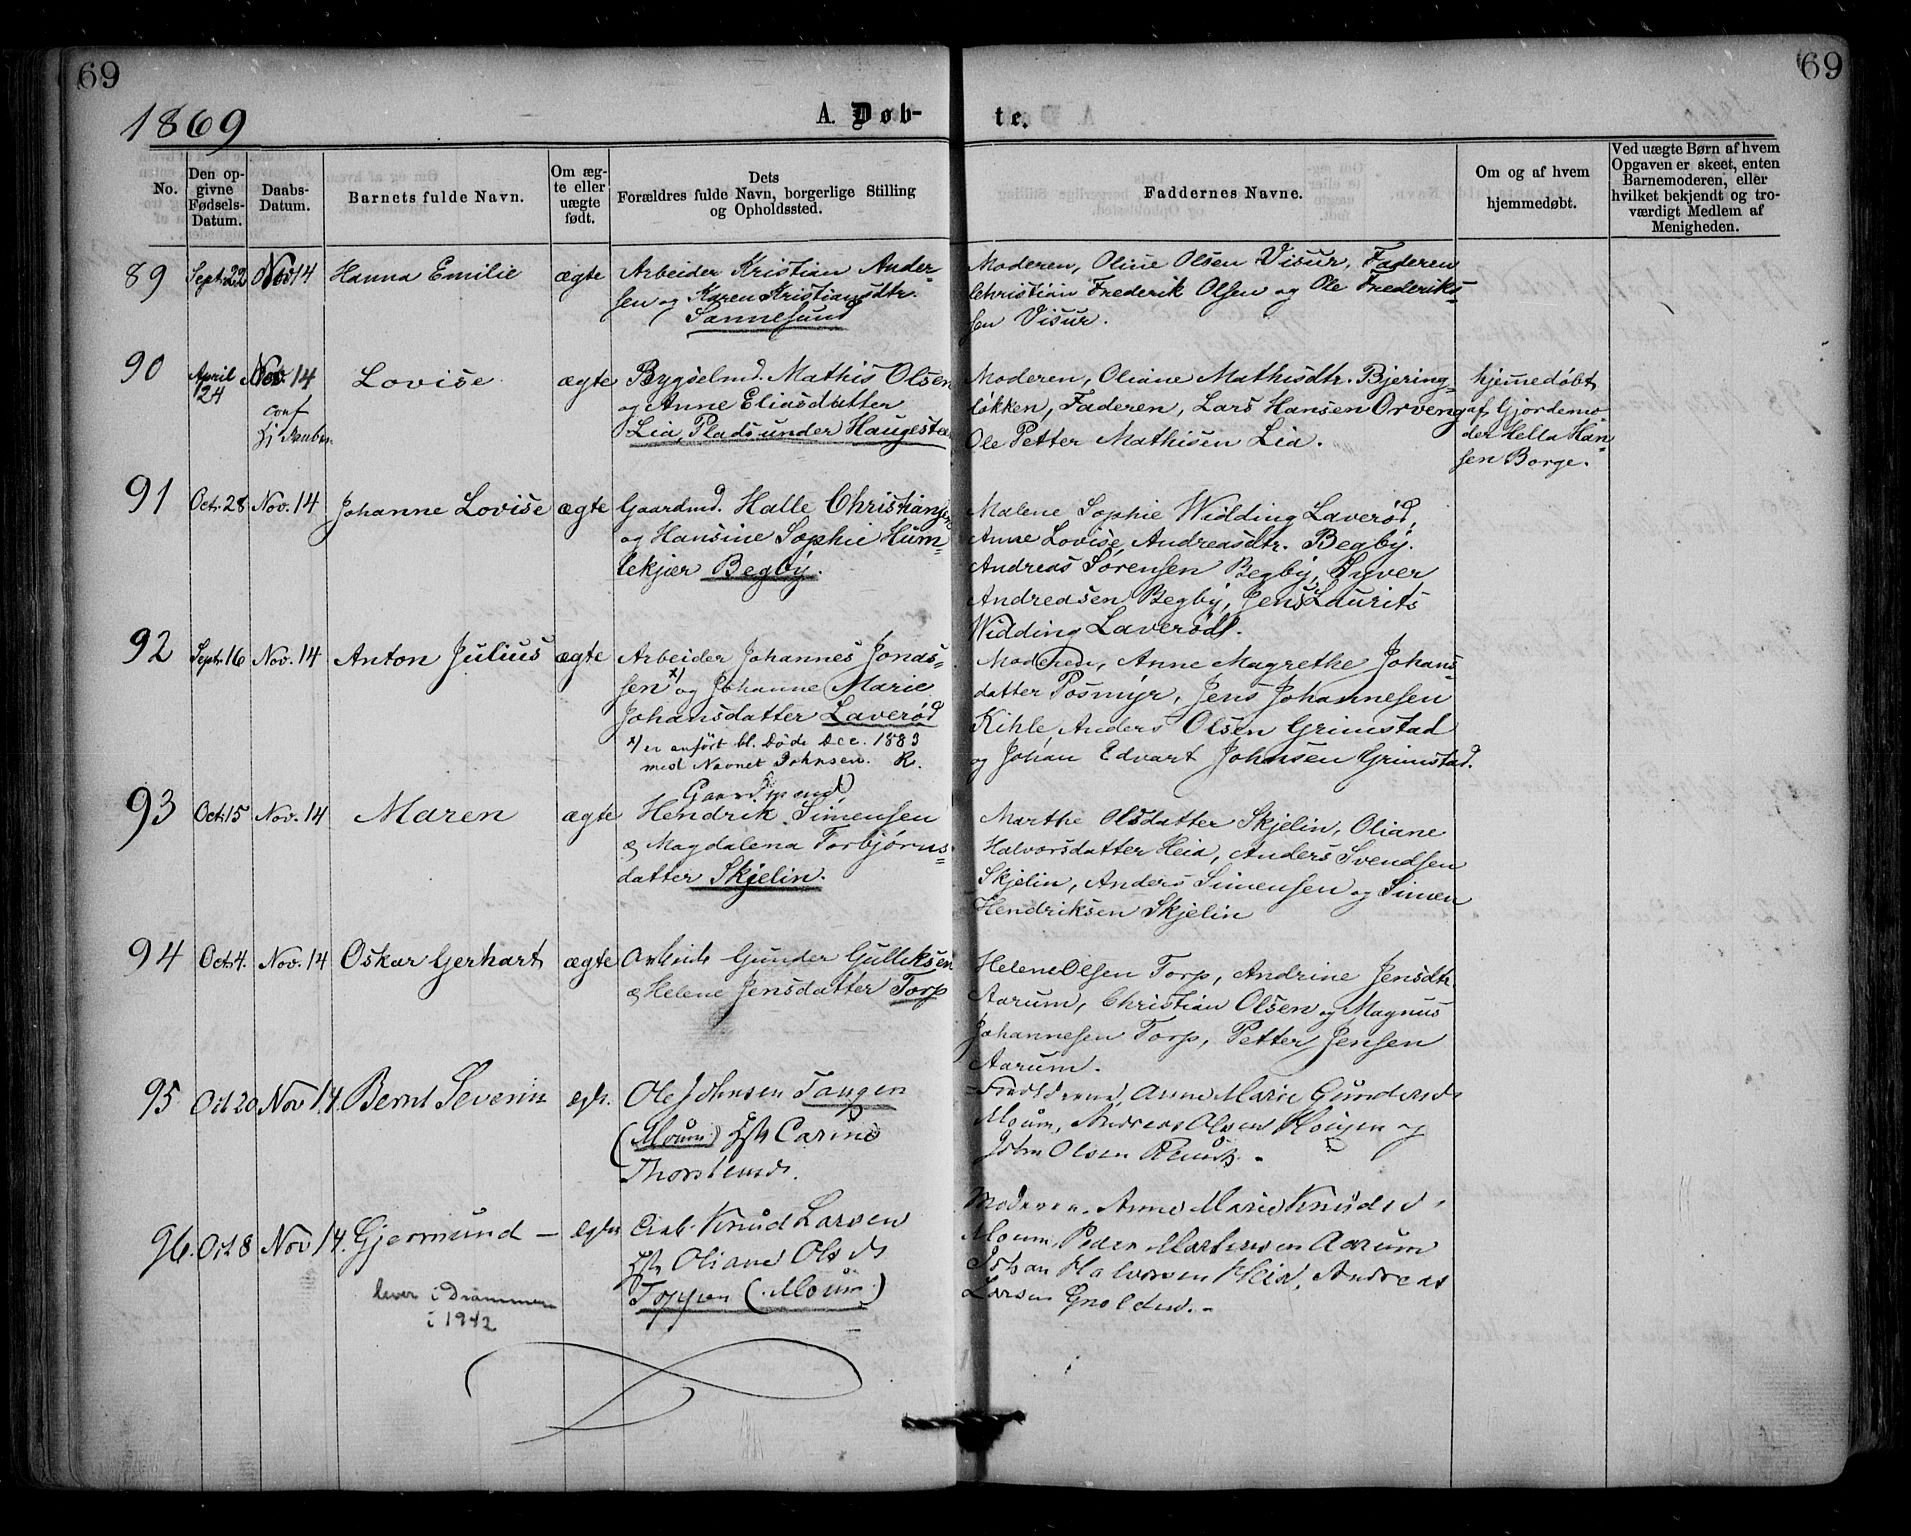 69
69
1869
A. Døb-
te.
No.
Den op-
givne
Fødsels-
Datum.
Daabs-
Datum.
Barnets fulde Navn.
Om æg-
te eller
uægte
født.
Dets
Forældres fulde Navn, borgerlige Stilling
og Opholdssted.
Faddernes Navne.
Om og af hvem
hjemmedøbt.
Ved uægte Børn af hvem
Opgaven er skeet, enten
Barnemoderen, eller
hvilket bekjendt og tro-
værdigt Medlem af
Menigheden.
89 Sept. 22 Nov 14 Hanna Emilie ægte
Arbeider Kristian Ander-
sen og Karen Kristiansdtr.
Sannesund
Moderen, Oline Olsen Visur, Faderen
Christian Frederik Olsen og Ole Frederik-
sen Visur.
90 April 24 Nov. 14 Lovise ægte
conf
Bygselmd. Mathis Olsen
og Anne Eliasdatter
Lia, Plads under Haugesten
Moderen, Oliane Mathisdtr. Bjering-
løkken, Faderen, Lars Hansen Orveng
Ole Petter Mathisen Lia.
hjemedøbt
af Gjordemo-
der Hella Han-
sen Borge.
91 Oct. 28 Nov. 14 Johanne Lovise ægte
Gaardmd. Halle Christiansen
og Hansine Sophie Hum-
lekjær Begby.
Malene Sophie Widding Laverød,
Anne Lovise Andreasdtr. Begby.
Andreas Sørensen Begby, Syver
Andreasen Begby, Jens Laurits
Widding Laverød.
92 Sept. 16 Nov. 14 Anton Julius ægte
Arbeider Johannes Jonas-
sen x) og Johanne Marie
Johansdatter Laverød
x) er anført bl. Døde Dec. 1883
med Navnet Johnsen. R.
Moderen, Anne Magrethe Johans-
datter Posmyr, Jens Johannesen
Kihle, Anders Olsen Grimstad
og Johan Edvart Johnsen Grimstad.
93 Oct. 15 Nov. 14 Maren ægte
Gaardmand
Hendrik Simensen
& Magdalena Torbjørns-
datter Skjelin.
Marthe Olsdatter Skjelin, Oliane
Halvorsdatter Heia, Anders Svendsen
Skjelin, Anders Simensen og Simen
Hendriksen Skjelin
94 Oct. 4. Nov. 14 Oskar Gerhart ægte
Arbeid. Gunder Gulliksen
& Helene Jensdatter Torp
Helene Olsen Torp, Andrine Jensdtr.
Aarum, Christian Olsen og Magnus
Johannesen Torp, Petter Jensen
Aarum.
95 Oct 20 Nov 14. Bernt Severin ægt.
Ole Johnsen Tangen
(Moum) Carine
Thorstensd.
Anne Marie Gundersd
Moum, Andreas Olsen Hougen og
John Olsen
96. Oct 8 Nov 14. Gjermund — ægte
lever i Drammen
i 1942
Arb. Knud Larsen
Oliane Olsd
Toppen (Moum)
Moderen. Anne Marie Knudsd.
Moum, Peder Martinsen Aarum
Johan Halvorsen Heia, Andreas
Larsen